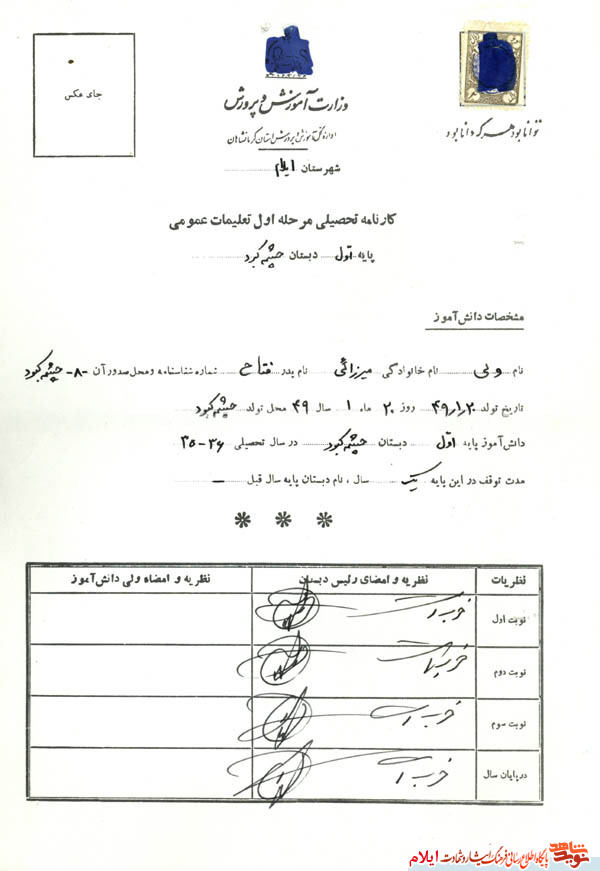 جای عکس
وزارت آموزش و پرورش
اداره کل آموزش و پرورش استان کرمانشاهان
توانا بود هر که دانا بود
شهرستان ایلام
کارنامه تحصیلی مرحله اول تعلیمات عمومی
پایه اول دبستان چشمه کبود
مشخصات دانش آموز
نام ولی نام خانوادگی میرزائی نام پدر فتاح شماره شناسنامه و محل صدور آن -۸- چشمه کبود
تاریخ تولد ۴۹ر۱ر۲۰ روز ۲۰ ماه ۱ سال ۴۹ محل تولد چشمه کبود
دانش آموز پایه اول دبستان چشمه کبود در سال تحصیلی ۳۶-۳۵
مدت توقف در این پایه یک سال ، نام دبستان پایه سال قبل –
* * *
نظریات نظریه و امضای رئیس دبستان نظریه و امضاء ولی دانش آموز
نوبت اول خوب است
نوبت دوم خوب است
نوبت سوم خوب است
در پایان سال خوب است
نوید شاهد پایگاه اطلاع رسانی فرهنگ ایثار و شهادت ایلام